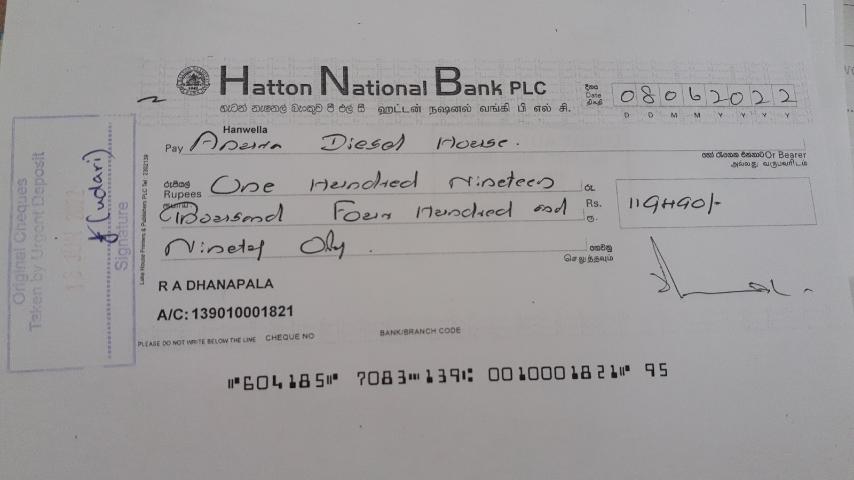 Hatton National Bank PLC
හැටන් නැෂනල් බෑංකුව පී එල් සී ஹட்டன் நஷனல் வங்கி பி எல் சி.
දිනය
Date
திகதி
08062022
D D M M Y Y Y Y
Hanwella
Pay Diesel House.
හෝ රැගෙන එනතාට Or Bearer
அல்லது வருபவரிடம்
රුපියල්
Rupees One Hundred Nineteen
Thousand Four Hundred and
Ninety Only.
රු
Rs.
ரூ.
119490/-
ගෙවනු
செலுத்தவும்
R A DHANAPALA
A/C: 139010001821
PLEASE DO NOT WRITE BELOW THE LINE CHEQUE NO BANK/BRANCH CODE
⑈604185⑈ 7083⑉139⑆ 0010001821⑈ 95
Lake House Printers & Publishers PLC Tel
Original Cheques
Taken by Urgent Deposit
(Udari)
Signature